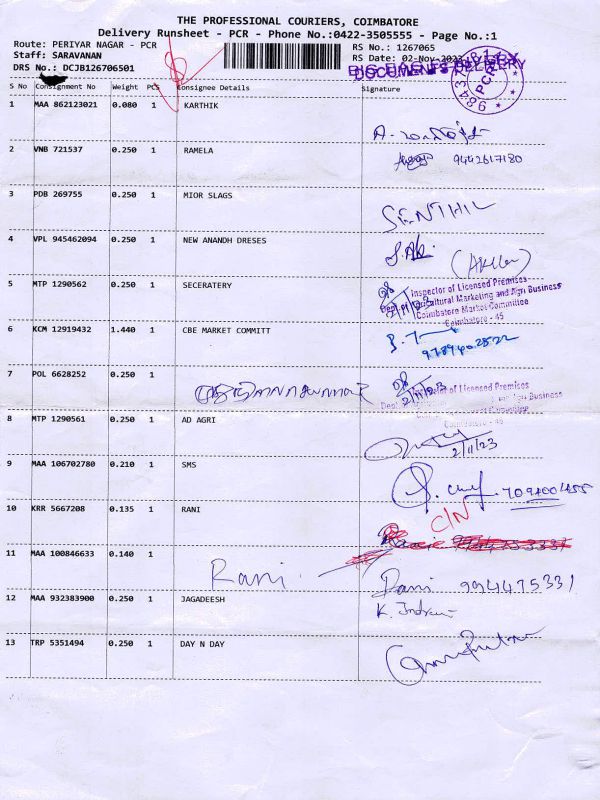 THE PROFESSIONAL COURIERS, COIMBATORE
Delivery Runsheet - PCR - Phone No.:0422-3505555 - Page No.:1
Route: PERIYAR NAGAR - PCR RS No.: 1267065
Staff: SARAVANAN RS Date: 02-Nov-2023
DRS No.: DCJB126706501
DOCUMENTS DELIVERY
PCR
S No Consignment No Weight PCS Consignee Details Signature
1 MAA 862123021 0.080 1 KARTHIK
2 VNB 721537 0.250 1 RAMELA
9442617180
3 PDB 269755 0.250 1 MIOR SLAGS
SENTHIL
4 VPL 945462094 0.250 1 NEW ANANDH DRESES
5 MTP 1290562 0.250 1 SECERATERY
Inspector of Licensed Premises
Dept. of Agricultural Marketing and Agri Business
Coimbatore Market Committee
Coimbatore - 45
2/11/23
6 KCM 12919432 1.440 1 CBE MARKET COMMITT
7 POL 6628252 0.250 1
Inspector of Licensed Premises
2/11/23
8 MTP 1290561 0.250 1 AD AGRI
2/11/23
9 MAA 106702780 0.210 1 SMS
10 KRR 5667208 0.135 1 RANI
C/N
11 MAA 100846633 0.140 1 Rani
Rani 9944475331
12 MAA 932383900 0.250 1 JAGADEESH
13 TRP 5351494 0.250 1 DAY N DAY